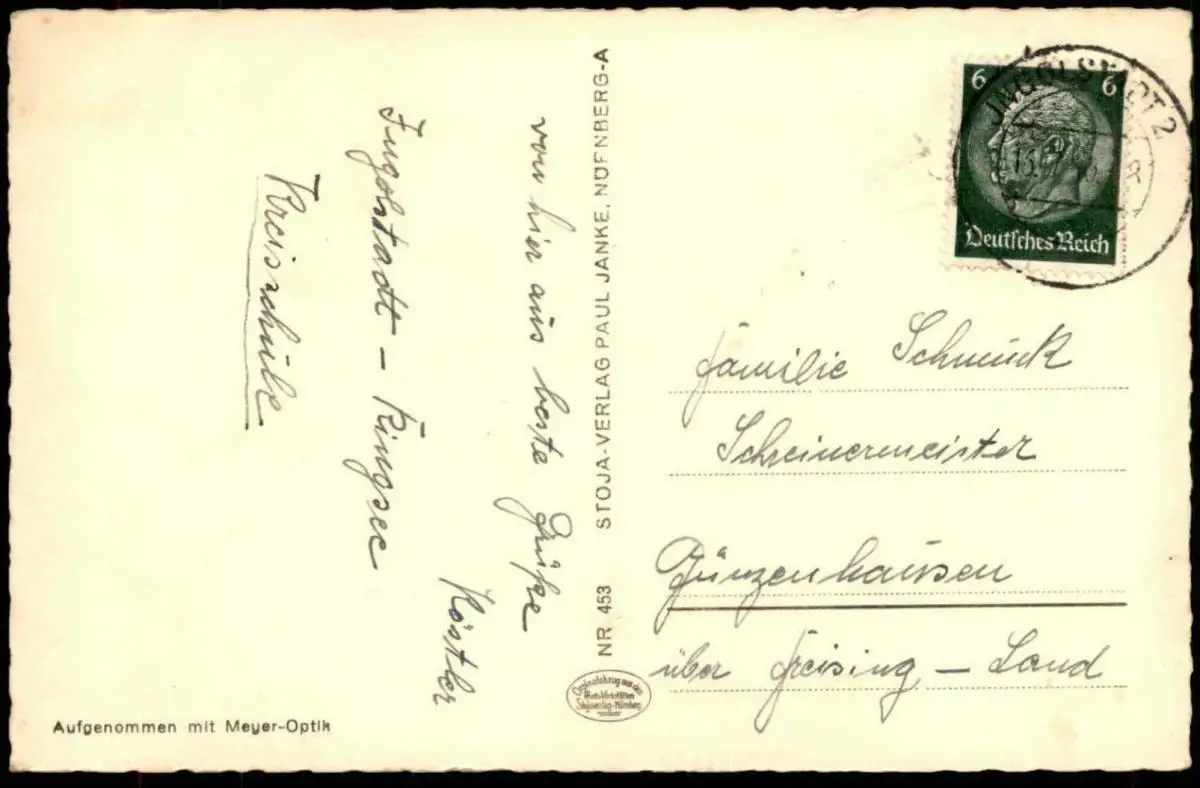 von hier aus beste Grüße
Köstler
Ingolstadt – Ringsee
Kreisschule
NR 453 STOJA-VERLAG PAUL JANKE, NÜRNBERG-A
Aufgenommen mit Meyer-Optik
6 6
Deutsches Reich
INGOLSTADT 2
Familie Schmuck
Schreinermeister
Günzenhausen
über Freising – Land